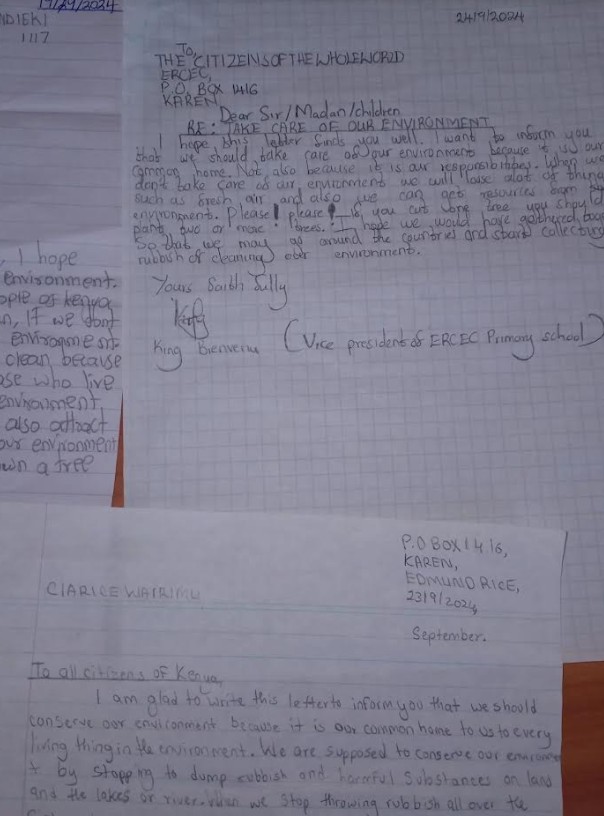 19/09/2024
NDIEKI
1117
, I hope
environment.
ople of kenya
n, If we dont
environment
clean because
ose who live
environment
also attract
our environment
own a tree
24/9/2024
To,
THE CITIZENS OF THE WHOLE WORLD
ERCEC,
P.O. BOX 1416
KAREN,
Dear Sir/Madan/children
RE: TAKE CARE OF OUR ENVIRONMENT
I hope this letter finds you well. I want to inform you
that we should take care of our environment because it is our
common home. Not also because it is our responsibities. When we
don't take care of air environment we will lose alot of thing
such as fresh air and also we can get resources from
environment. Please! please! if you cut one tree you should
plant two or more trees. I hope we would have gathered
so that we may go around the countries and start collecting
rubbish of cleaning our environment.
Yours faith fully
King Bienvenu (Vice president of ERCEC Primary school)
P.O BOX 14.16,
KAREN,
EDMUND RICE,
23/9/2024
September.
CLARICE WAIRIMU
To all citizens of Kenya,
I am glad to write this letterto inform you that we should
conserve our environment because it is our common home to us to every
living thing in the environment. We are supposed to conserve our environme
t by stopping to dump rubbish and harmful Substances on land
and the lakes or river. when we stop throwing rubbish all over the